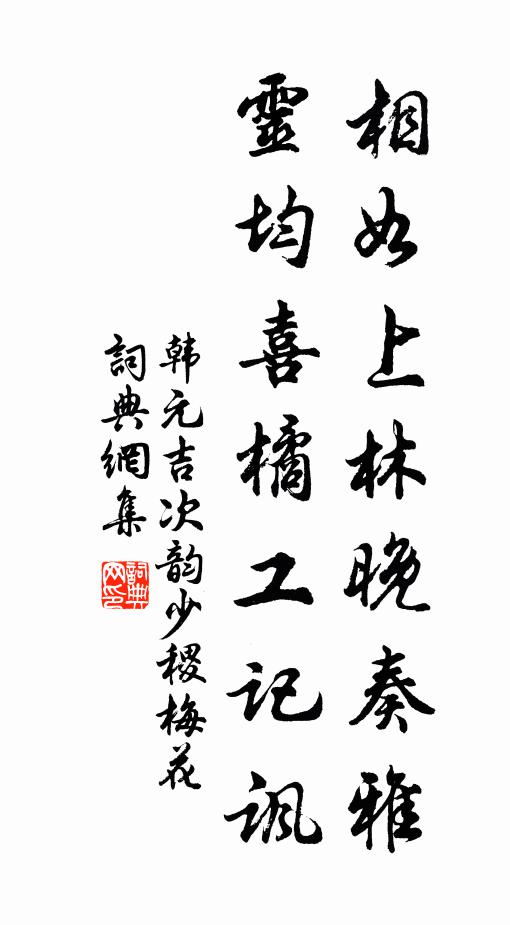 相如上林晚奏雅
靈均喜橘工記諷
韩元吉次韵少稷梅花
詞典網集
詞典网印